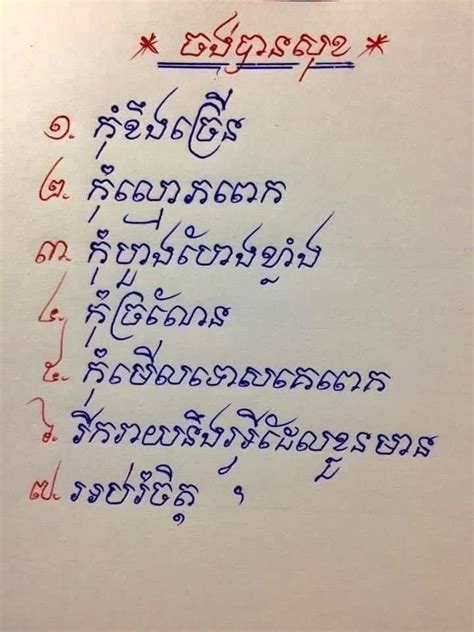 * ចង់បានសុខ *
១. កុំខឹងច្រើន
២. កុំលោភពេក
៣. កុំហួងហែងខ្លាំង
៤. កុំច្រណែន
៥. កុំមើលទោសគេពេក
៦. រីករាយនឹងអ្វីដែលខ្លួនមាន
៧. អប់រំចិត្ត ។